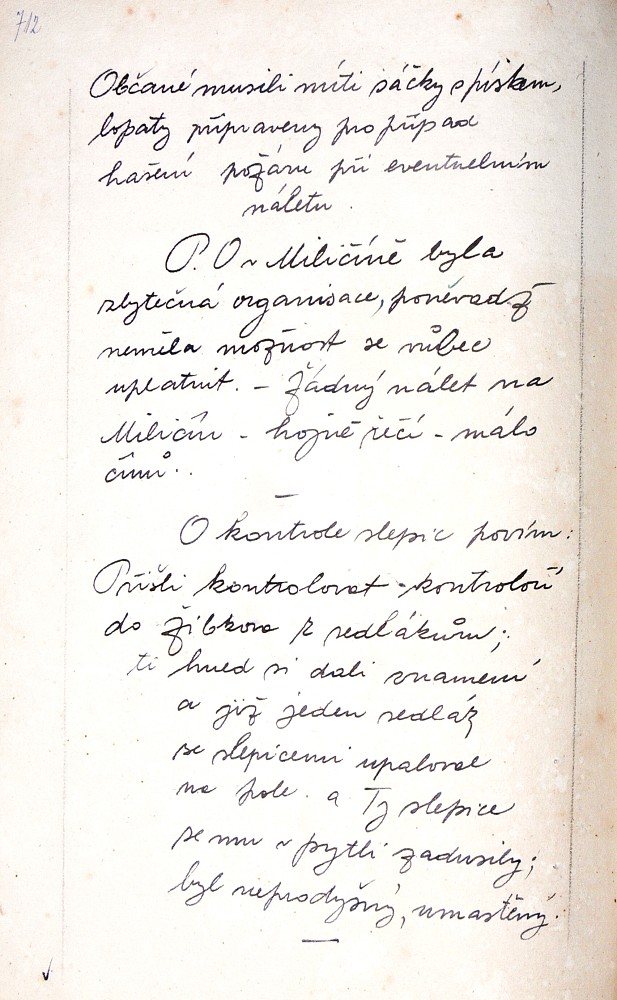 712
Občané musili míti sáčky s pískem,
lopaty připraveny pro případ
hašení požáru při eventuelním
náletu.
P.O v Miličíně byla
zbytečná organisace, poněvadž
neměla možnost se vůbec
uplatnit. – Žádný nálet na
Miličín – hojně řečí – málo
činů..
O kontrole slepic povím:
Přišli kontrolovat kontroloři
do Žibkova k sedlákům;
ti hned si dali znamení
a již jeden sedlák
se slepicemi upaloval
na pole. a Ty slepice
se mu v pytli zadusily;
byl neprodyšný, umaštěný.